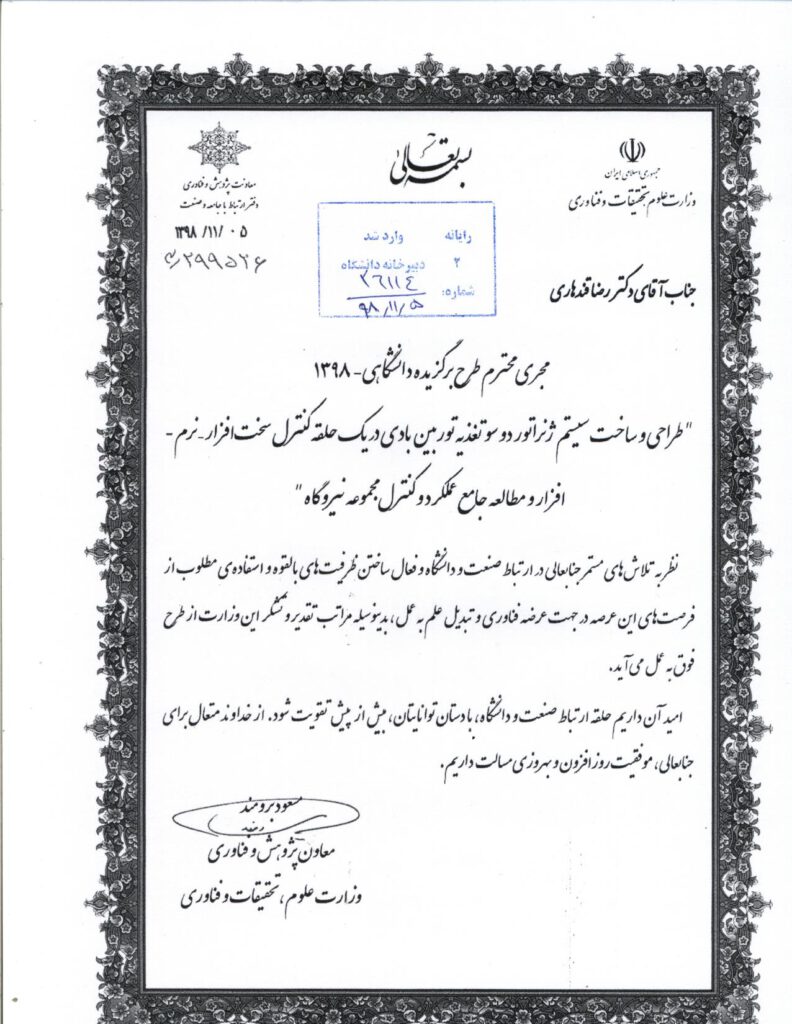 بسمه تعالی
جمهوری اسلامی ایران
وزارت علوم تحقیقات و فناوری
معاونت پژوهش و فناوری
دفتر ارتباط با جامعه و صنعت
۱۳۹۸ /۱۱/ ۰۵
۲۹۹۵۲۶
رایانه وارد شد
۲ دبیرخانه دانشگاه
شماره: ۲۶۱۱۴
۹۸/۱۱/۵
جناب آقای دکتر رضا قندهاری
مجری محترم طرح برگزیده دانشگاهی - ۱۳۹۸
"طراحی و ساخت سیستم ژنراتور دو سو تغذیه توربین بادی در یک حلقه کنترل سخت افزار - نرم -
افزار و مطالعه جامع عملکرد و کنترل مجموعه نیروگاه"
نظر به تلاش های مستمر جنابعالی در ارتباط صنعت و دانشگاه و فعال ساختن ظرفیت های بالقوه و استفاده ی مطلوب از
فرصت های این عرصه در جهت عرضه فناوری و تبدیل علم به عمل، بدینوسیله مراتب تقدیر و تشکر این وزارت از طرح
فوق به عمل می آید.
امید آن داریم حلقه ارتباط صنعت و دانشگاه، با دستان توانایتان، بیش از پیش تقویت شود. از خداوند متعال برای
جنابعالی، موفقیت روز افزون و بهروزی مسالت داریم.
مسعود برومند
معاون پژوهش و فناوری
وزارت علوم، تحقیقات و فناوری